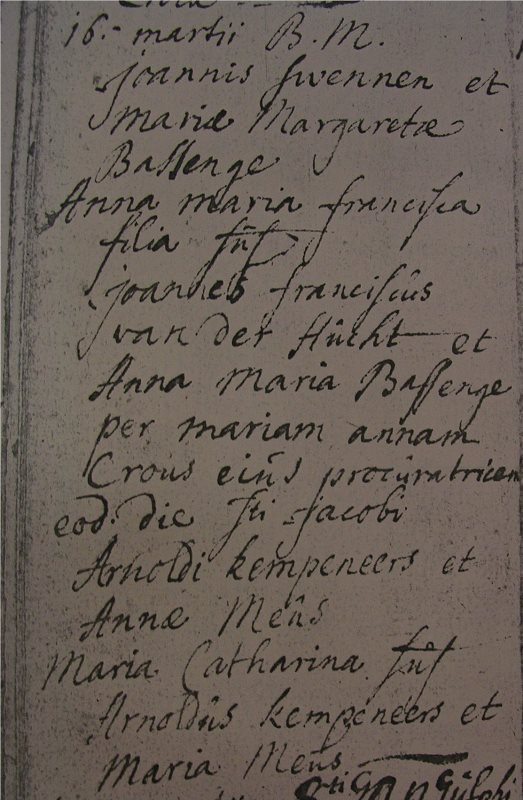 16.- martii B. M.
joannis swennen et
mariæ Margaretæ
Bassenge
Anna maria francisca
filia sûs
joannes franciscûs
van der Hûcht et
Anna Maria Bassenge
per mariam annam
Crous eiûs procûratricem
eod. die sti jacobi
Arnoldi kempeneers et
Annæ Meûs
Maria Catharina sûs
Arnoldûs kempeneers et
Maria Meûs
Sti Gangûlphi